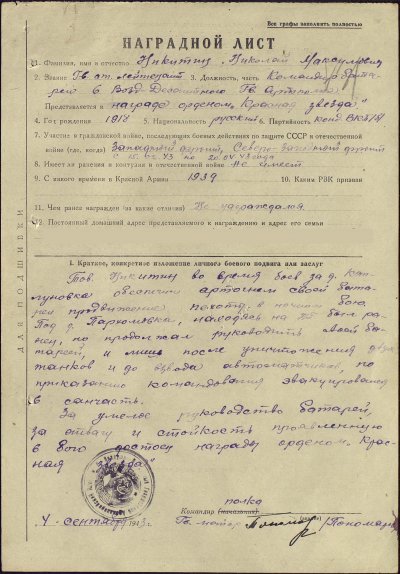 Все графы заполнить полностью
НАГРАДНОЙ ЛИСТ
1. Фамилия, имя и отчество Никитин Николай Максимович
2. Звание Гв. ст. лейтенант 3. Должность, часть Командир бата-
реи 6 Возд. Десантного Гв Артполка
Представляется к награде орденом „Красная звезда"
4. Год рождения 1918 5. Национальность русский 6. Партийность канд. ВКП/б/
7. Участие в гражданской войне, последующих боевых действиях по защите СССР и отечественной
войне (где, когда) Западный фронт, Северо-Западный фронт
с 15.02.43 по 20.04.43 года
8. Имеет ли ранения и контузии в отечественной войне Не имеет
9. С какого времени в Красной Армии 1939 10. Каким РВК призван
11. Чем ранее награжден (за какие отличия) Не награждался
12. Постоянный домашний адрес представляемого к награждению и адрес его семьи
ДЛЯ ПОДШИВКИ
I. Краткое, конкретное изложение личного боевого подвига или заслуг
Тов. Никитин во время боев за д. Кап-
луновка обеспечил артогнем своей бата-
реи продвижение пехоты в ночном бою.
Под д. Пархомовка, находясь на НП был ра-
нен, но продолжал руководить своей ба-
тареей, и лишь после уничтожения двух
танков и до взвода автоматчиков, по
приказанию командования эвакуировался
в санчасть.
За умелое руководство батареей,
за отвагу и стойкость проявленную
в бою достоин награды орденом „Крас-
ная звезда"
полка
Командир (начальник)
4 сентября 1943 г. Гв. майор /Пономар